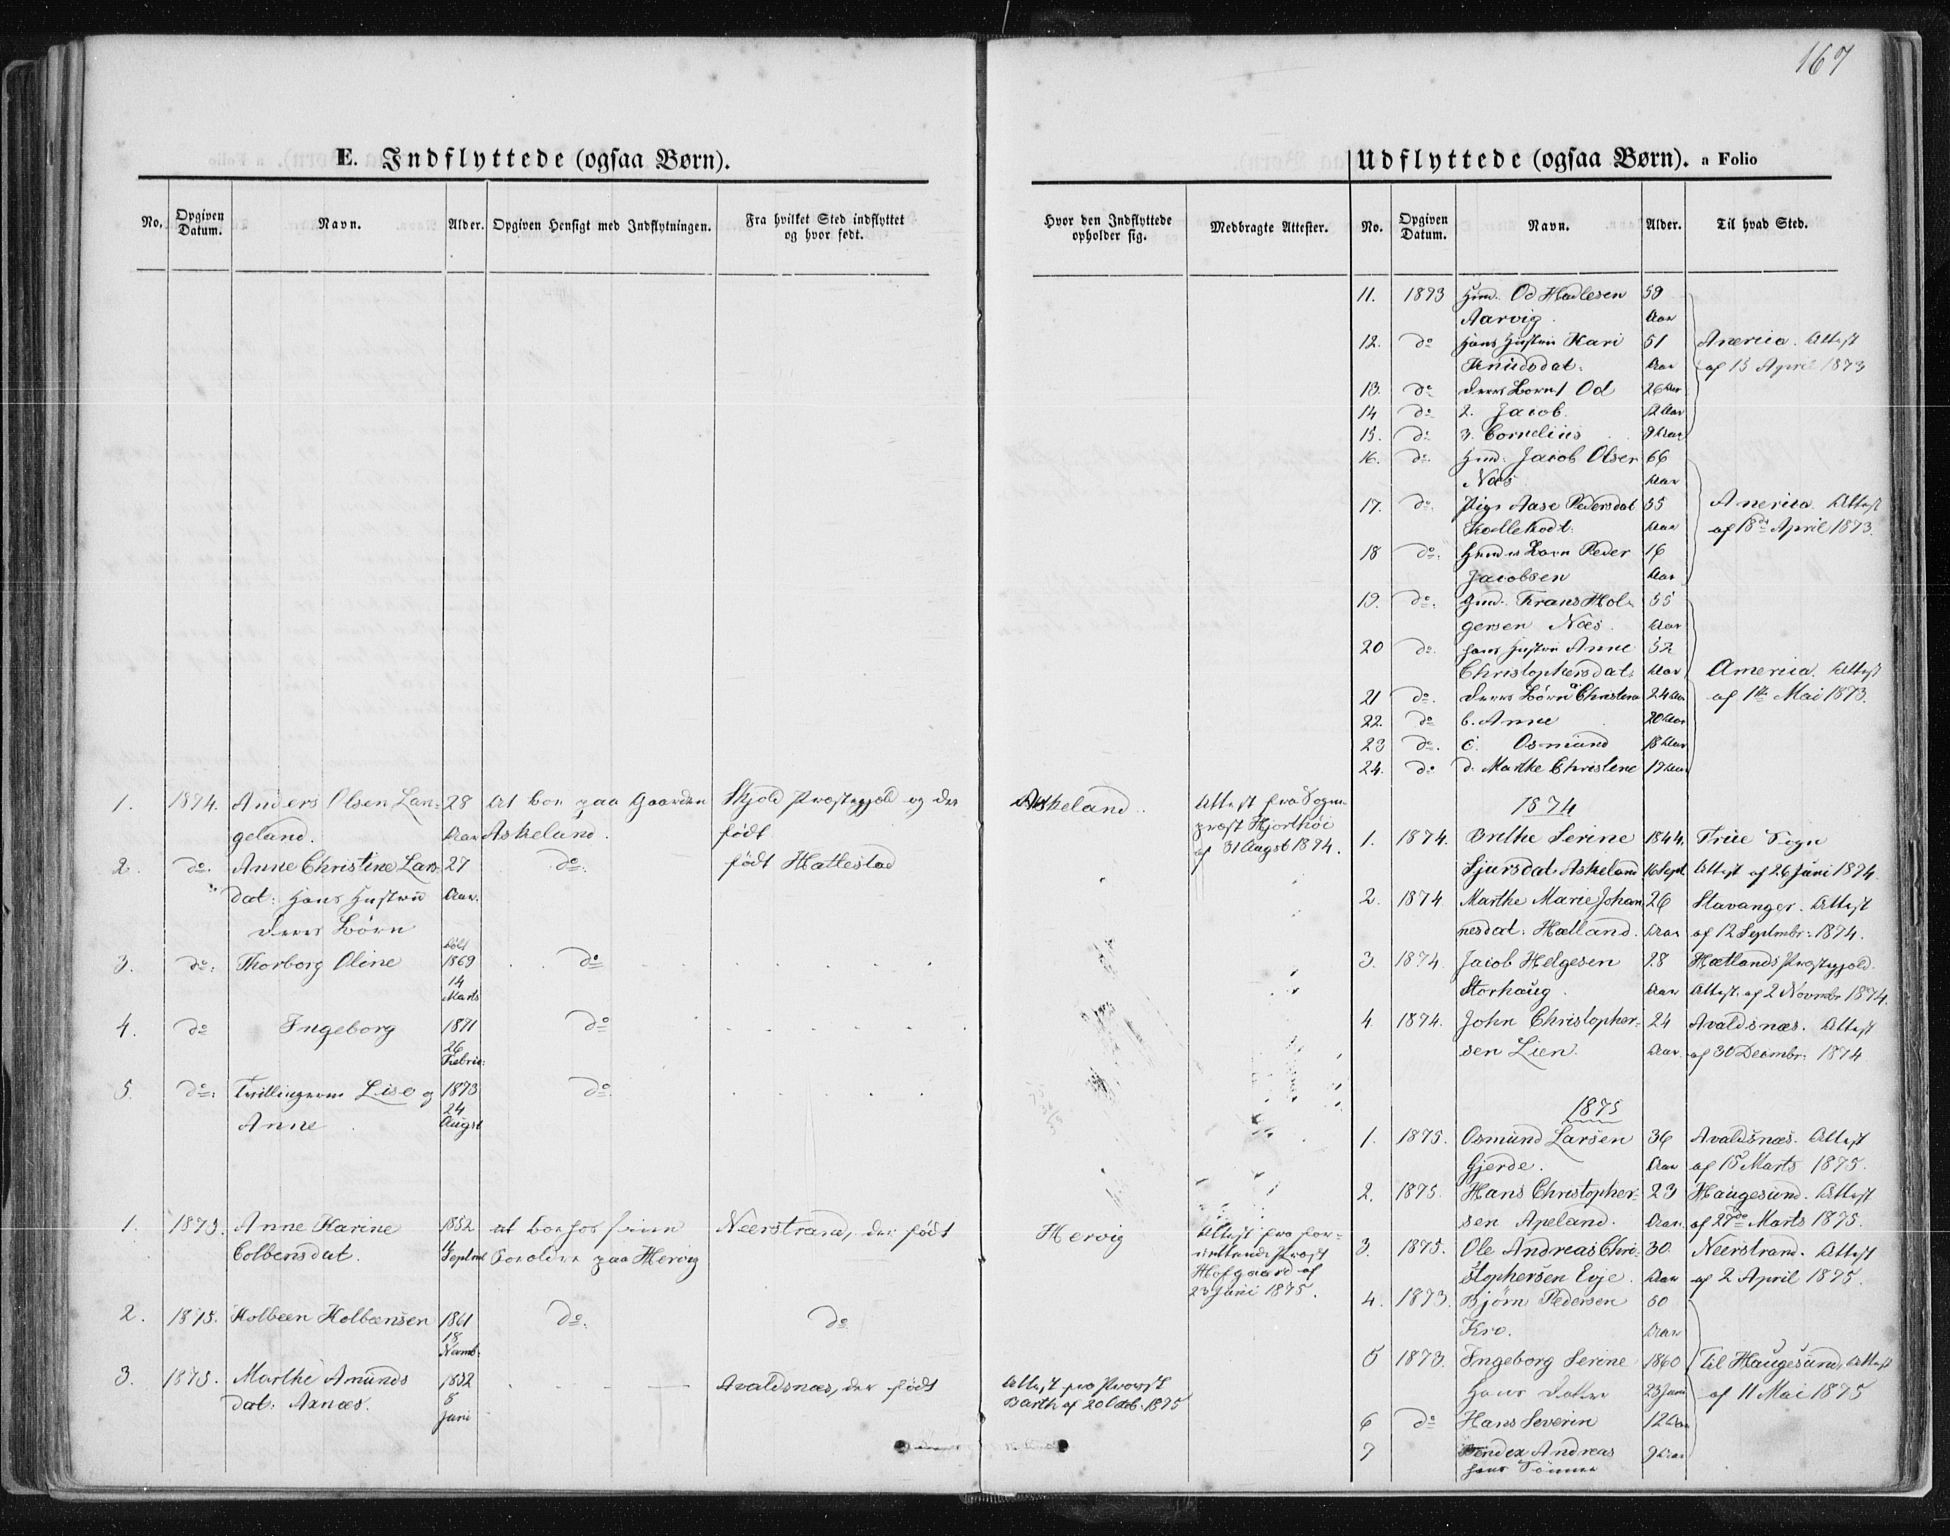 167
E. Indflyttede (ogsaa Børn).
No. Opgiven Datum. Navn. Alder. Opgiven Hensigt med Indflytningen. Fra hvilket Sted indflyttet og hvor født.
Hvor den Indflyttede opholder sig. Medbragte Attester.
1. 1874. Anders Olsen Lan- 28 At boe paa Gaarden Skjold Præstegjeld og der Askeland. Attest fra Sogne-
geland. Aar Askeland. født præst Hjorthøi
af 31 Augst 1874.
2. do. Anne Christine Lars- 27 do. født Hattestad
dat: Hans Hustru Aar.
Deres Børn
3. do. Thorborg Oline født 1869 do
14 Marts
4. do Ingeborg 1871 do
26 Febru:
5. do. Tvillingerne Lise og 1873 do.
Anne 24 Augst
1. 1875. Anne Karine 1852 at boe hos sine Neerstrand, der født Hervig Attest fra for-
Colbensdat. Septmb Forældre paa Hervig rettende Præst
Hofgaard af
23 Juni 1875.
2. 1875. Kolbeen Kolbeensen 1861 do. do.
18 Novmb.
3. 1875. Marthe Amunds 1852 Avaldsnæs, der født Attest fra Provst
dat: Axnæs. 8 Juni Barth af 20 Octob. 1875
Udflyttede (ogsaa Børn). a Folio
No. Opgiven Datum. Navn. Alder. Til hvad Sted.
11. 1873 Gmd. Od Hadlesen 59
Aarvig. Aar
12. do Hans Hustru Kari 51 America. Attest
Knudsdat. Aar af 15 April 1873
13. do Deres Børn 1 Od 26 Aar
14 do 2. Jacob. 12 Aar
15. do 3. Cornelius 9 Aar
16. do. Gmd. Jacob Olsen 66
Næs Aar
17. do. Pige Aase Pedersdat 55 America. Attest
Aar af 18de April 1873.
18 do. Hendes Børn Peder 16
Jacobsen Aar
19. do. Gmd. Frans Hol- 55
gersen Næs. Aar
20 do. hans Hustru Anne 52
Christophersdat: Aar America. Attest
21 do. Deres Børn a Christine 24 Aar af 1ste Mai 1873.
22. do b. Anne 20 Aar
23 do. c. Osmund 18 Aar
24. do d. Marthe Christine 17 Aar
1874
1. 1874. Brithe Serine 1844. Frue Sogn
Sjursdat Askeland 16 Sept. Attest af 26 Juni 1874.
2. 1874. Marthe Marie Johan 26 Stavanger. Attest
nesdat. Hætland. Aar af 12 Septmbr: 1874.
3. 1874. Jacob Helgesen 28 Hætlands Præstegjeld
Storhaug. Aar Attest. af 2 Novmbr 1874.
4. 1874. John Christopher- 24 Avaldsnæs. Attest
sen Lien. Aar af 30 Decmbr: 1874
1875
1. 1875. Osmund Larsen 36 Avaldsnæs. Attest
Gjerde. Aar af 18 Marts 1875.
2. 1875. Hans Christopher- 23 Haugesund. Attest
sen Apeland. Aar. af 27de Marts 1875.
3. 1875. Ole Andreas Chri- 30. Neerstrand. Attest
stophersen Evje. Aar af 2 April 1875.
4. 1873. Bjørn Pedersen 60
Kro. Aar
5 1873. Ingeborg Serine 1860 Til Haugesund, Attest
Hans Datter 23 Juni af 11 Mai 1875
6 do Hans Severin 12 Aar
7 Bendex Andreas 9 Aar
hans Sønner